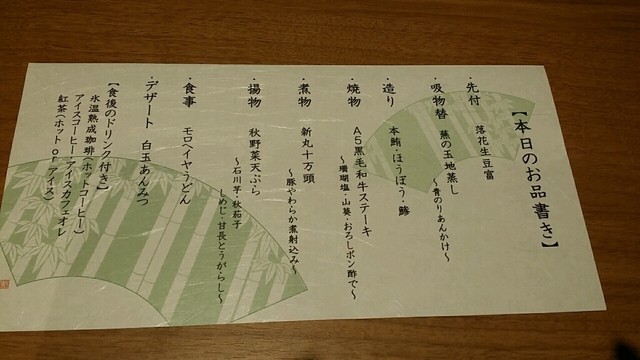 【本日のお品書き】
・先付　落花生豆富
・吸物替　蕪の玉地蒸し
～青のりあんかけ～
・造り　本鮪・ほうぼう・鯵
・焼物　A5黒毛和牛ステーキ
～珊瑚塩・山葵・おろしポン酢で～
・煮物　新丸十万頭
～豚やわらか煮射込み～
・揚物　秋野菜天ぷら
～石川芋・秋茄子
しめじ・甘長とうがらし～
・食事　モロヘイヤうどん
・デザート　白玉あんみつ
【食後のドリンク付き】
氷温熟成珈琲（ホットコーヒー）
アイスコーヒー　アイスカフェオレ
紅茶（ホット or アイス）